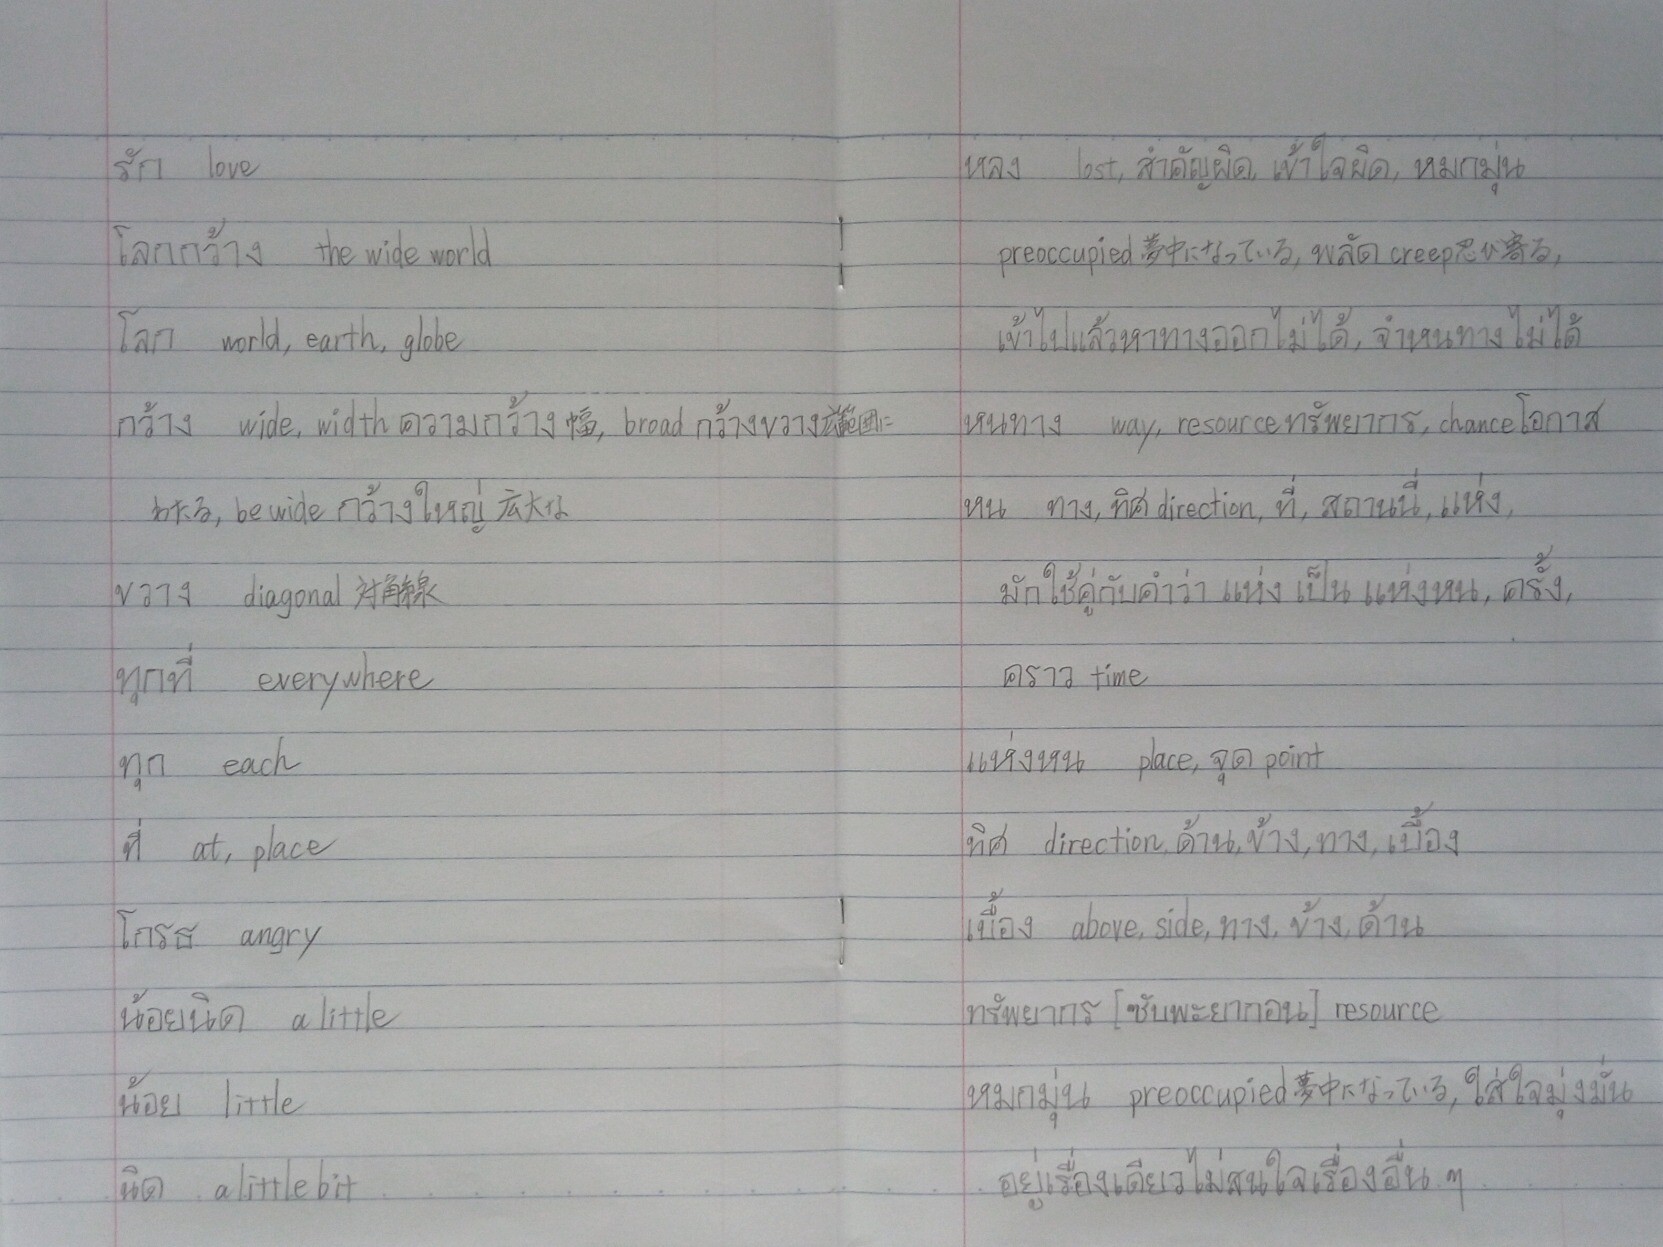 รัก love
โลกกว้าง the wide world
โลก world, earth, globe
กว้าง wide, width ความกว้าง 幅, broad กว้างขวาง 広範囲に
わたる, be wide กว้างใหญ่ 広大な
ขวาง diagonal 対角線
ทุกที่ everywhere
ทุก each
ที่ at, place
โกรธ angry
น้อยนิด a little
น้อย little
นิด a little bit
หลง lost, สำคัญผิด, เข้าใจผิด, หมกมุ่น
preoccupied 夢中になっている, พลัด creep 忍び寄る,
เข้าไปแล้วหาทางออกไม่ได้, จำหนทางไม่ได้
หนทาง way, resource ทรัพยากร, chance โอกาส
หน ทาง, ทิศ direction, ที่, สถานนี่, แห่ง,
มักใช้คู่กับคำว่า แห่ง เป็น แห่งหน, ครั้ง,
คราว time
แห่งหน place, จุด point
ทิศ direction, ด้าน, ข้าง, ทาง, เบื้อง
เบื้อง above, side, ทาง, ข้าง, ด้าน
ทรัพยากร [ซับพะยากอน] resource
หมกมุ่น preoccupied 夢中になっている, ใส่ใจมุ่งมั่น
อยู่เรื่องเดียวไม่สนใจเรื่องอื่น ๆ